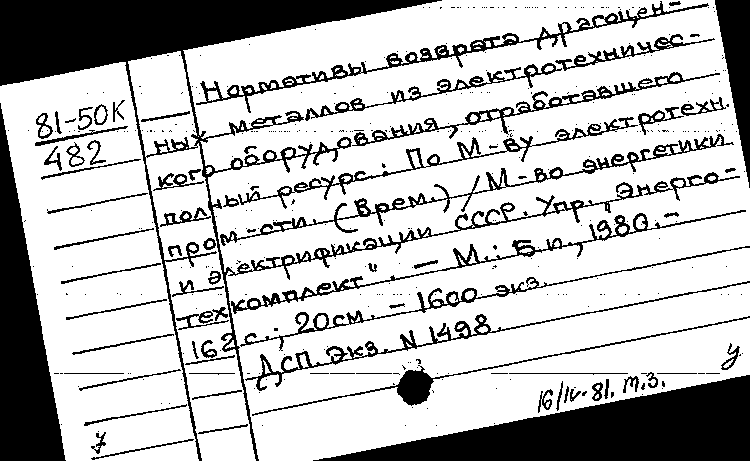 81-50К
482
Нормативы возврата драгоцен-
ных металлов из электротехничес-
кого оборудования, отработавшего
полный ресурс: По М-ву электротехн.
пром-сти. (Врем.) / М-во энергетики
и электрификации СССР. Упр. „Энерго-
техкомплект". – М.: Б.и., 1980. –
162 с.; 20см. – 1600 экз.
ДСП. Экз. N 1498.
16/IV-81. т.з.
у